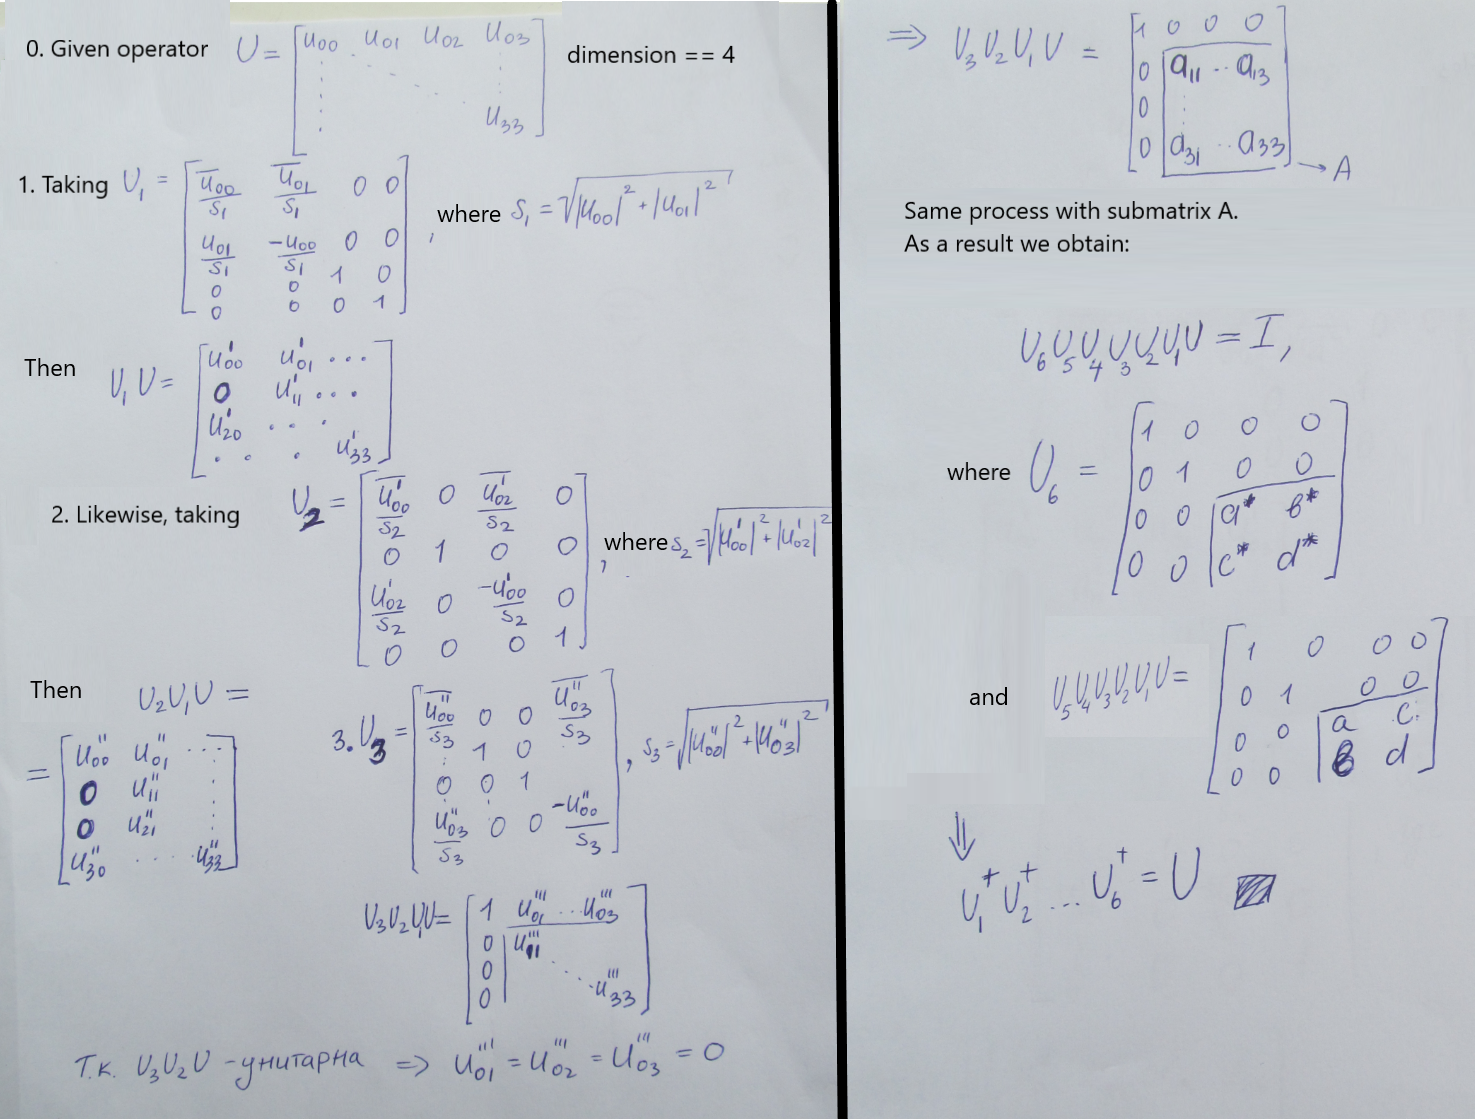 0. Given operator U = [u₀₀ u₀₁ u₀₂ u₀₃ ⋮ ⋱ ⋮ u₃₃] dimension == 4
1. Taking U₁ = [u̅₀₀/S₁ u̅₀₁/S₁ 0 0
u₀₁/S₁ -u₀₀/S₁ 0 0
0 0 1 0
0 0 0 1]
, where S₁ = √(|u₀₀|² + |u₀₁|²)
Then U₁U = [u'₀₀ u'₀₁ ...
0 u'₁₁ ...
u'₂₀ ...
. . . u'₃₃]
2. Likewise, taking U₂ = [u̅'₀₀/S₂ 0 u̅'₀₂/S₂ 0
0 1 0 0
u'₀₂/S₂ 0 -u'₀₀/S₂ 0
0 0 0 1]
, where S₂ = √(|u'₀₀|² + |u'₀₂|²)
Then U₂U₁U =
= [u''₀₀ u''₀₁ ...
0 u''₁₁
0 u''₂₁
u''₃₀ .... u''₃₃]
3. U₃ = [u̅''₀₀/S₃ 0 0 u̅''₀₃/S₃
: 1 0
0 0 1
u''₀₃/S₃ 0 0 -u''₀₀/S₃]
, S₃ = √(|u''₀₀|² + |u''₀₃|²)
U₃U₂U₁U = [1 u'''₀₁ ... u'''₀₃
0 u'''₁₁
0
0 ... u'''₃₃]
Т.к. U₃U₂U - унитарна ⇒ u'''₀₁ = u'''₀₂ = u'''₀₃ = 0
⇒ U₃U₂U₁U = [1 0 0 0
0 a₁₁ .. a₁₃
0 ⋮
0 a₃₁ .. a₃₃] → A
Same process with submatrix A.
As a result we obtain:
U₆U₅U₄U₃U₂U₁U = I,
where U₆ = [1 0 0 0
0 1 0 0
0 0 a* b*
0 0 c* d*]
and U₅U₄U₃U₂U₁U = [1 0 0 0
0 1 0 0
0 0 a c
0 0 b d]
⇓
U₁⁺ U₂⁺ ... U₆⁺ = U